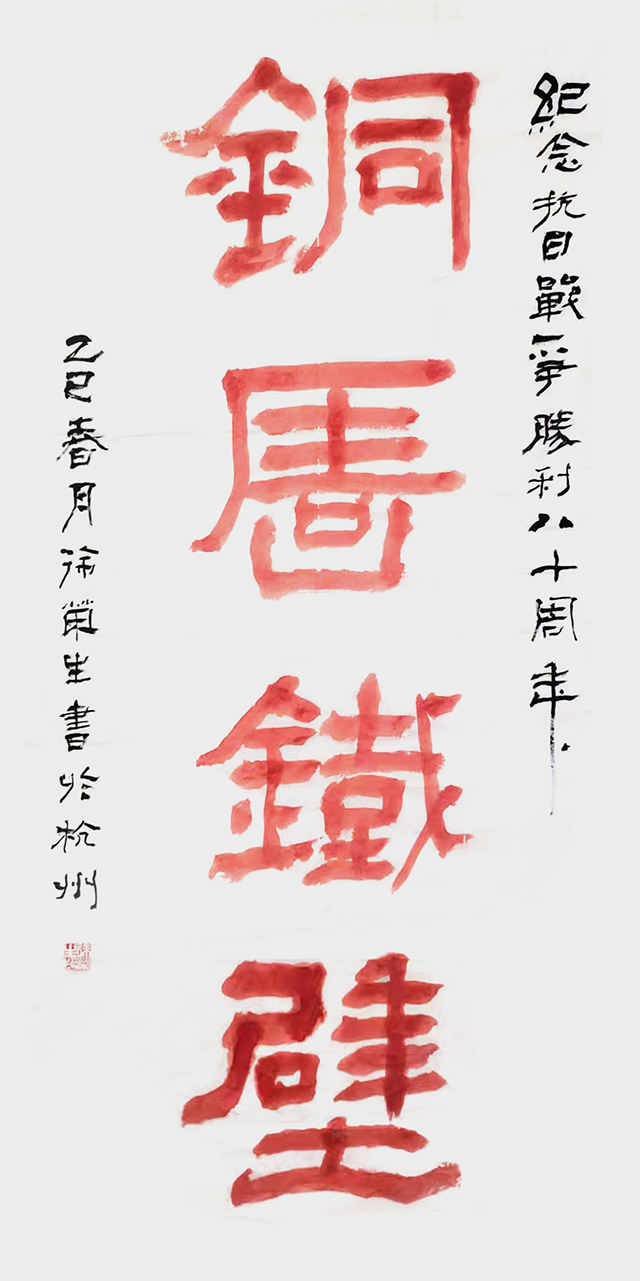 紀念抗日戰爭勝利八十周年
銅牆鐵壁
乙巳春月徐榮生書於杭州